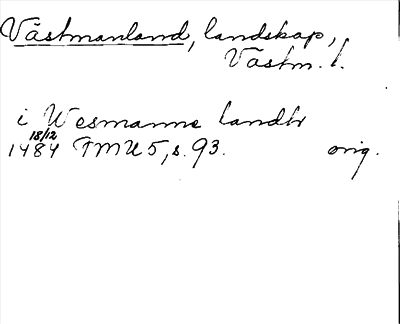 Västmanland, landskap,
Västm. l.
i Wesmanne landh
18/12
1484 FMU 5, s. 93. orig.